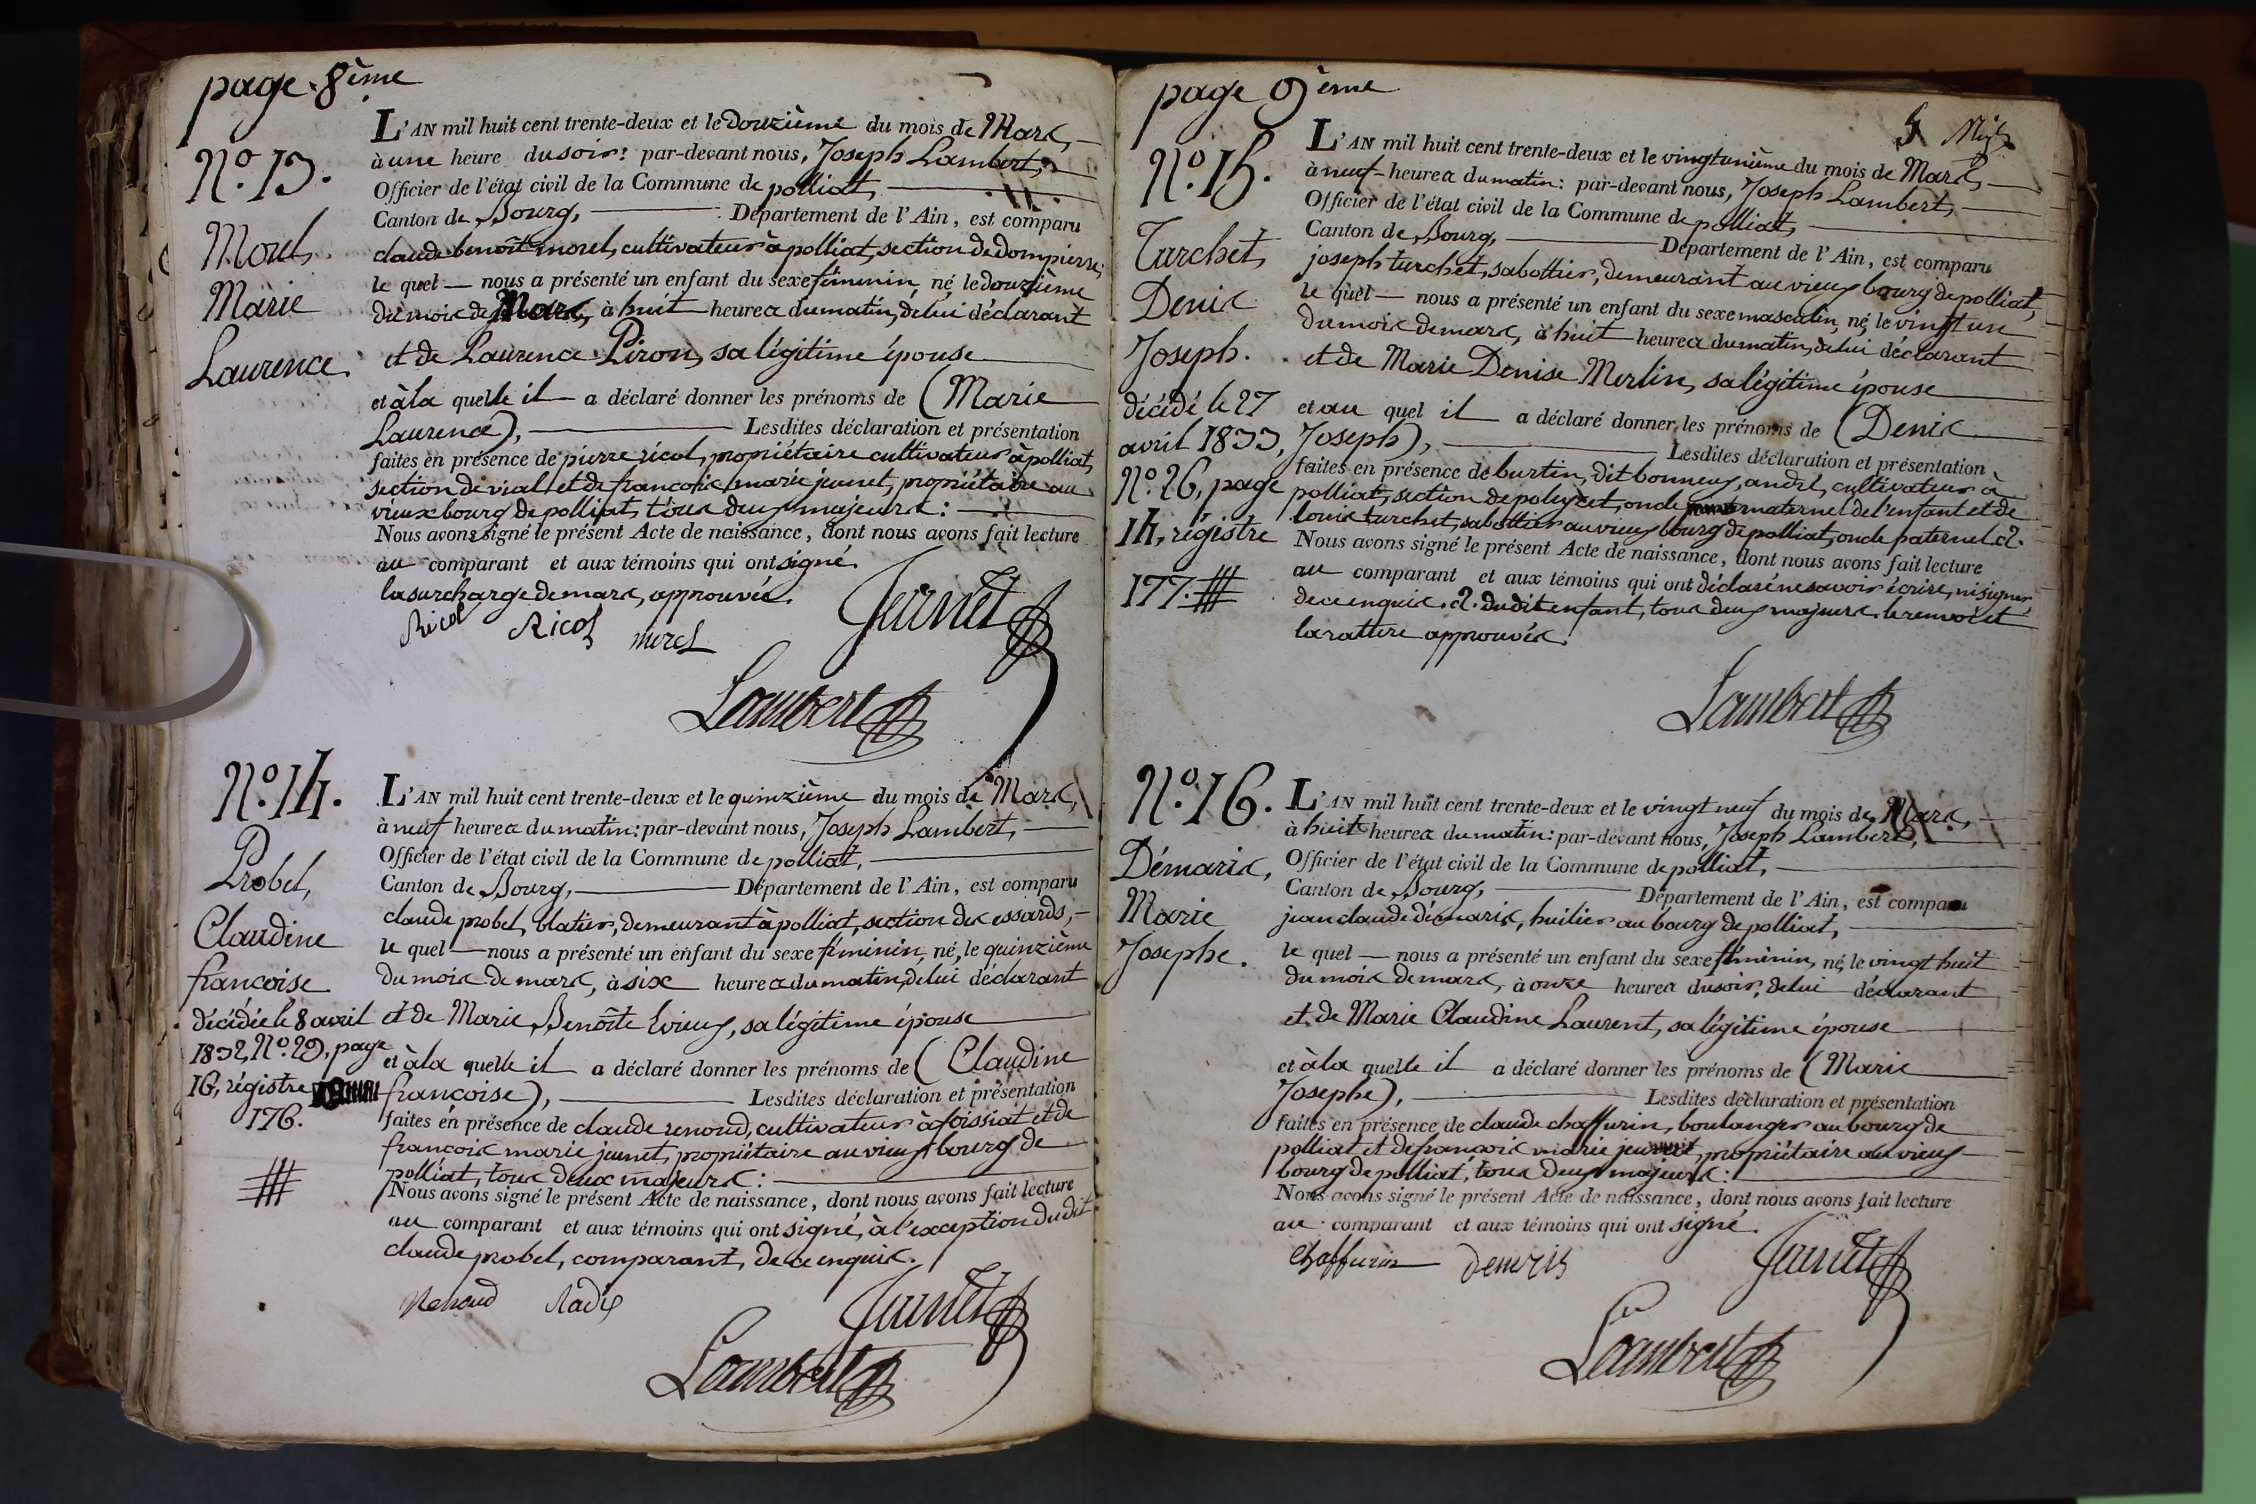 page 8ème
N.º 13.
Morel,
Marie
Laurence.
L'AN mil huit cent trente-deux et le douzième du mois de Mars,
à une heure du soir: par-devant nous, Joseph Lambert,
Officier de l'état civil de la Commune de polliat,
Canton de Bourg, Département de l'Ain, est comparu
claude benoît morel, cultivateur à polliat, section de dompierre,
le quel nous a présenté un enfant du sexe féminin, né, le douzième
du mois de Mars, à huit heures du matin, de lui déclarant
et de Laurence Piron, sa légitime épouse
et à la quelle il a déclaré donner les prénoms de (Marie
Laurence), Lesdites déclaration et présentation
faites en présence de pierre ricol, propriétaire cultivateur à polliat,
section de vial et de francois marie jeunet, propriétaire au
vieux bourg de polliat, tous deux majeurs:
Nous avons signé le présent Acte de naissance, dont nous avons fait lecture
au comparant et aux témoins qui ont signé.
la surcharge de mars, approuvée.
Ricol Ricol morel Jeunet
Lambert
N.º 14.
Probel,
Claudine
francoise
décédée le 8 avril
1832, N.º 29, page
16, régistre
176.
L'AN mil huit cent trente-deux et le quinzième du mois de Mars,
à neuf heures du matin: par-devant nous, Joseph Lambert,
Officier de l'état civil de la Commune de polliat,
Canton de Bourg, Département de l'Ain, est comparu
claude probel, blatier, demeurant à polliat, section des essards,
le quel nous a présenté un enfant du sexe féminin, né, le quinzième
du mois de mars, à six heures du matin, de lui déclarant
et de Marie Benoîte Vieux, sa légitime épouse
et à la quelle il a déclaré donner les prénoms de (Claudine
francoise), Lesdites déclaration et présentation
faites en présence de claude renoud, cultivateur à foissiat et de
francois marie jeunet, propriétaire au vieux bourg de
polliat, tous deux majeurs:
Nous avons signé le présent Acte de naissance, dont nous avons fait lecture
au comparant et aux témoins qui ont signé, à l'exception du dit
claude probel, comparant, de ce enquis.
Renoud Jeunet
Lambert
page 9ème
5
N.º 15.
Turchet,
Denis
Joseph.
décédé le 27
avril 1833,
N.º 26, page
14, régistre
177.
L'AN mil huit cent trente-deux et le vingtunième du mois de Mars,
à neuf heures du matin: par-devant nous, Joseph Lambert,
Officier de l'état civil de la Commune de polliat,
Canton de Bourg, Département de l'Ain, est comparu
joseph turchet, sabottier, demeurant au vieux bourg de polliat,
le quel nous a présenté un enfant du sexe masculin, né, le vingt un
du mois de mars, à huit heures du matin, de lui déclarant
et de Marie Denise Merlin, sa légitime épouse
et au quel il a déclaré donner les prénoms de (Denis
Joseph), Lesdites déclaration et présentation
faites en présence de burtin, dit bonneux, andré, cultivateur à
polliat, section de poleyzet, oncle maternel de l'enfant et de
louis turchet, sabottier au vieux bourg de polliat, oncle paternel
Nous avons signé le présent Acte de naissance, dont nous avons fait lecture
au comparant et aux témoins qui ont déclaré ne savoir écrire, ni signer
de ce enquis. du dit enfant, tous deux majeurs. le renvoi et
la rature approuvés.
Lambert
N.º 16.
Démaris,
Marie
Josephe.
L'AN mil huit cent trente-deux et le vingt neuf du mois de Mars,
à huit heures du matin: par-devant nous, Joseph Lambert,
Officier de l'état civil de la Commune de polliat,
Canton de Bourg, Département de l'Ain, est comparu
jean claude démaris, huilier au bourg de polliat,
le quel nous a présenté un enfant du sexe féminin, né, le vingt huit
du mois de mars, à onze heures du soir, de lui déclarant
et de Marie Claudine Laurent, sa légitime épouse
et à la quelle il a déclaré donner les prénoms de (Marie
Josephe), Lesdites déclaration et présentation
faites en présence de claude chaffurin, boulanger au bourg de
polliat et de francois marie jeunet, propriétaire au vieux
bourg de polliat, tous deux majeurs:
Nous avons signé le présent Acte de naissance, dont nous avons fait lecture
au comparant et aux témoins qui ont signé.
Chaffurin Demaris Jeunet
Lambert